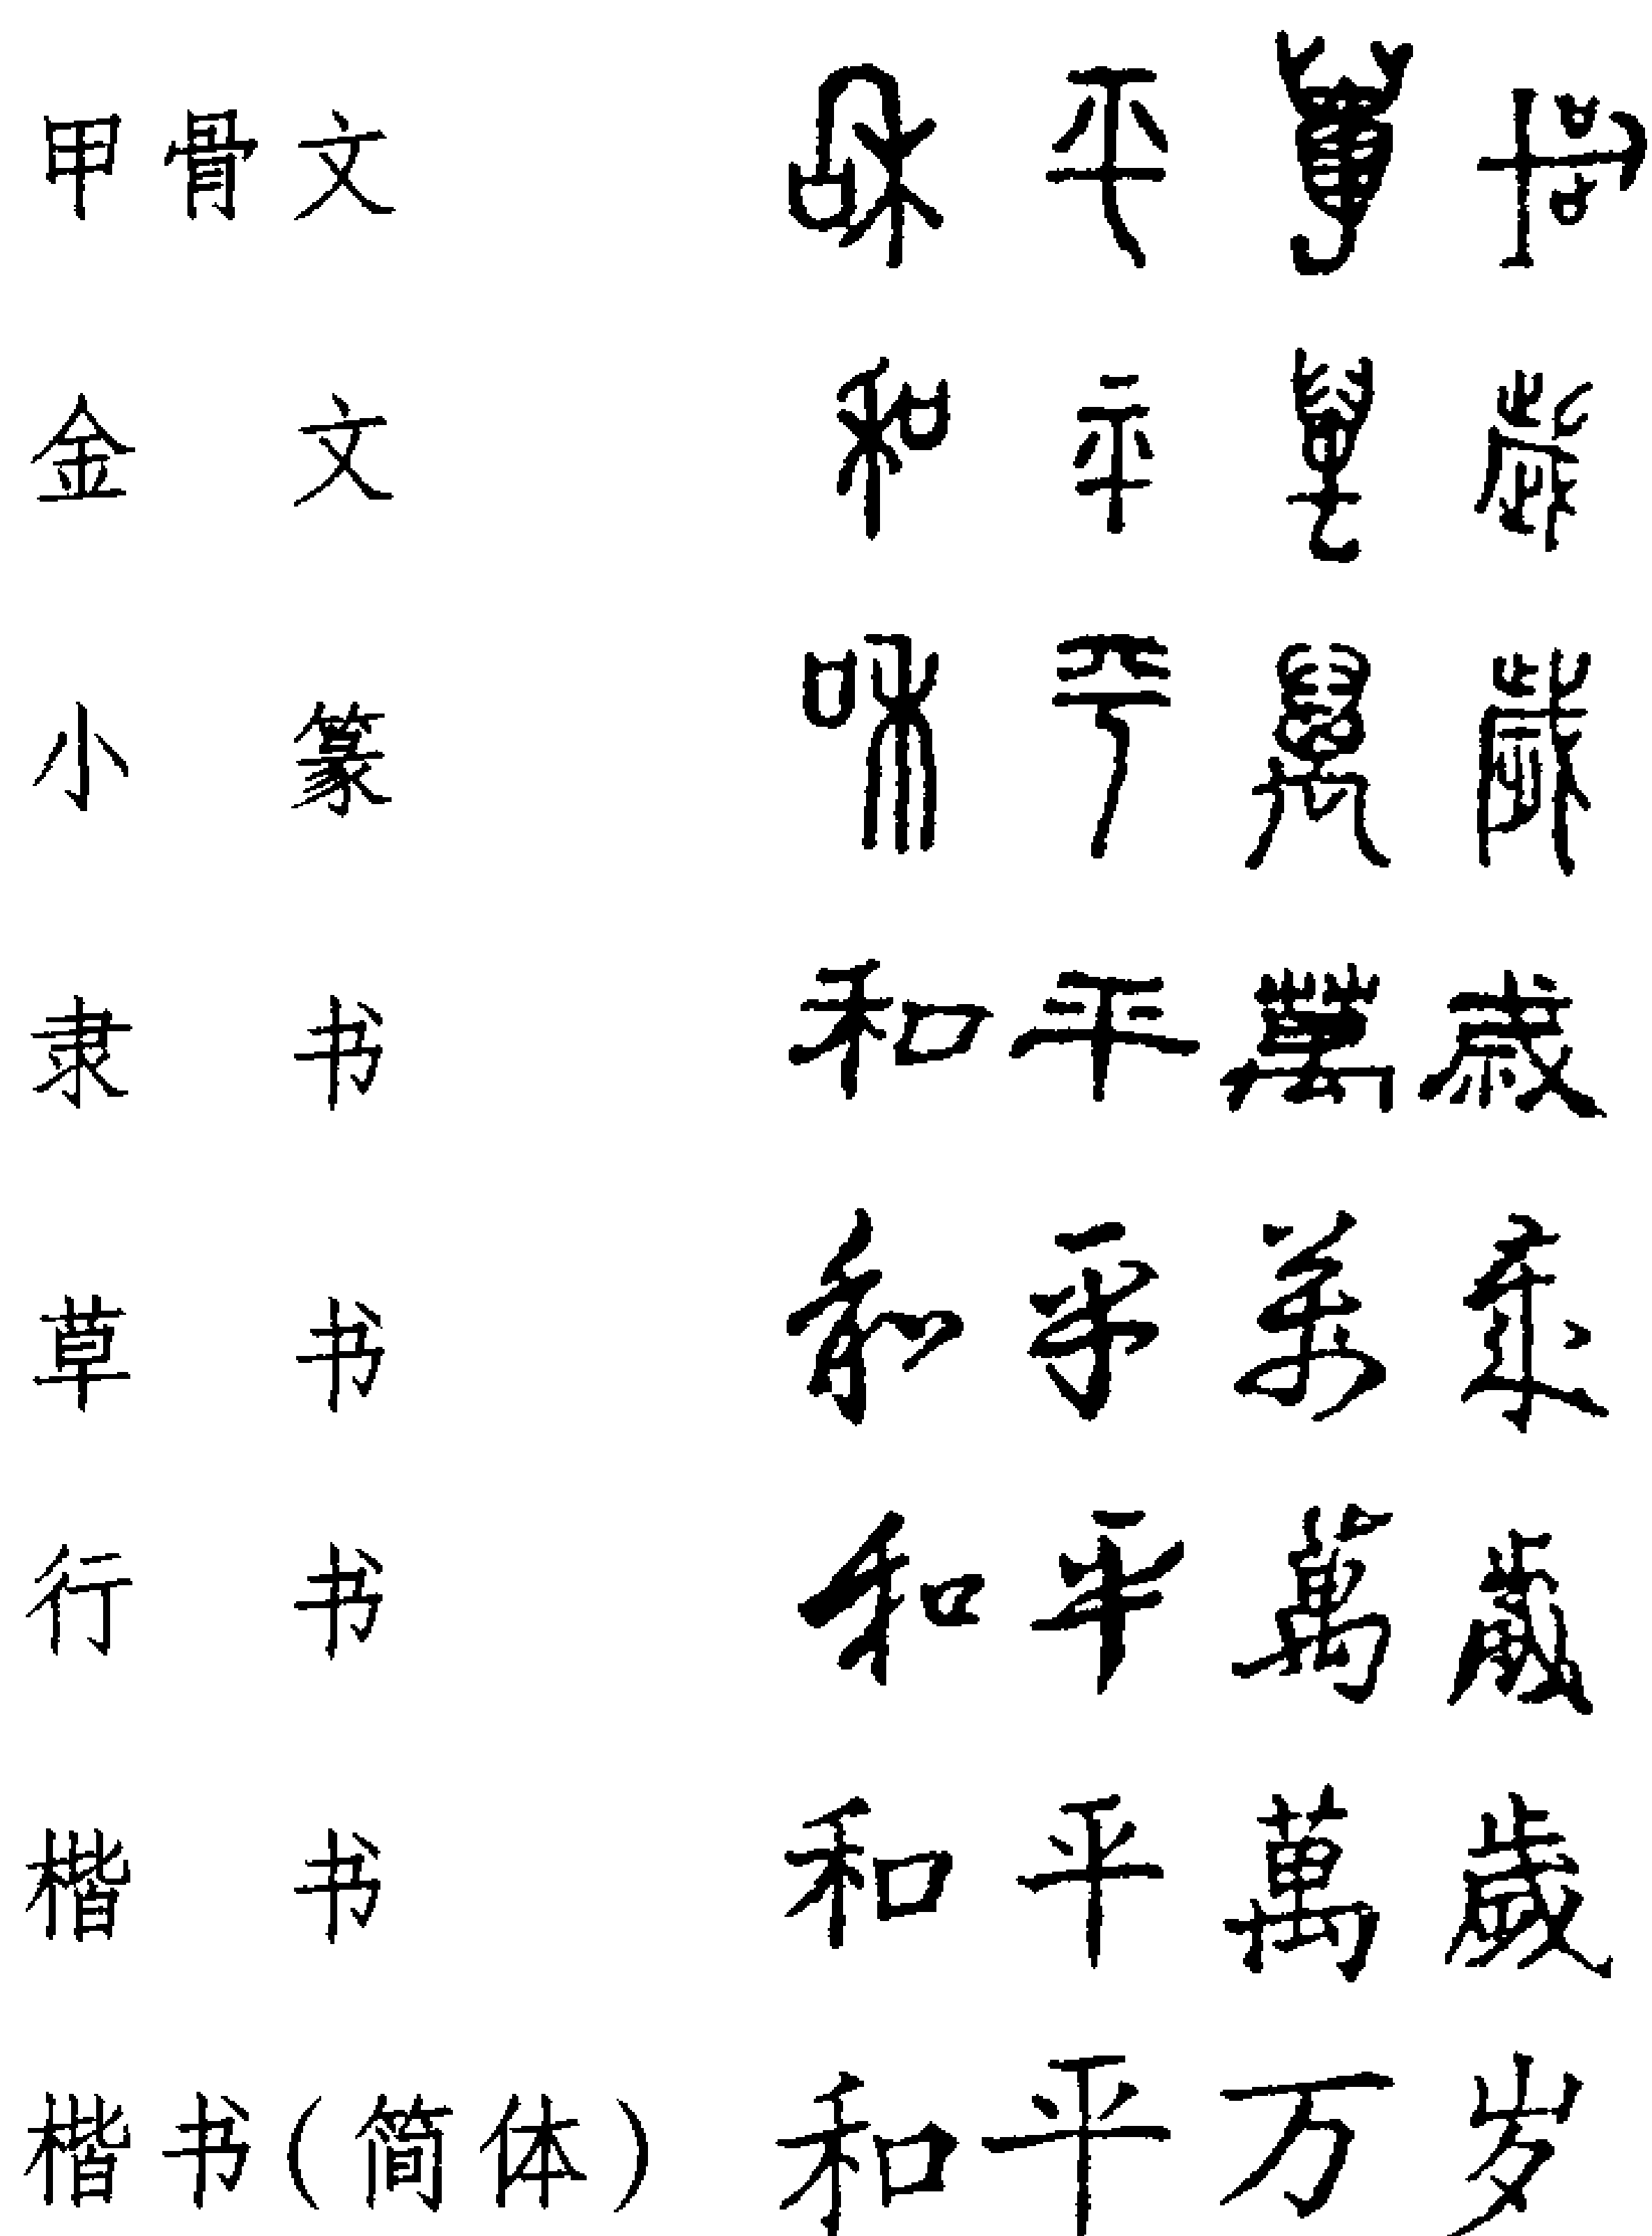 甲骨文 和平萬歲
金文 和平萬歲
小篆 和平萬歲
隶书 和平萬歲
草书 和平萬歲
行书 和平萬歲
楷书 和平萬歲
楷书(简体) 和平万岁